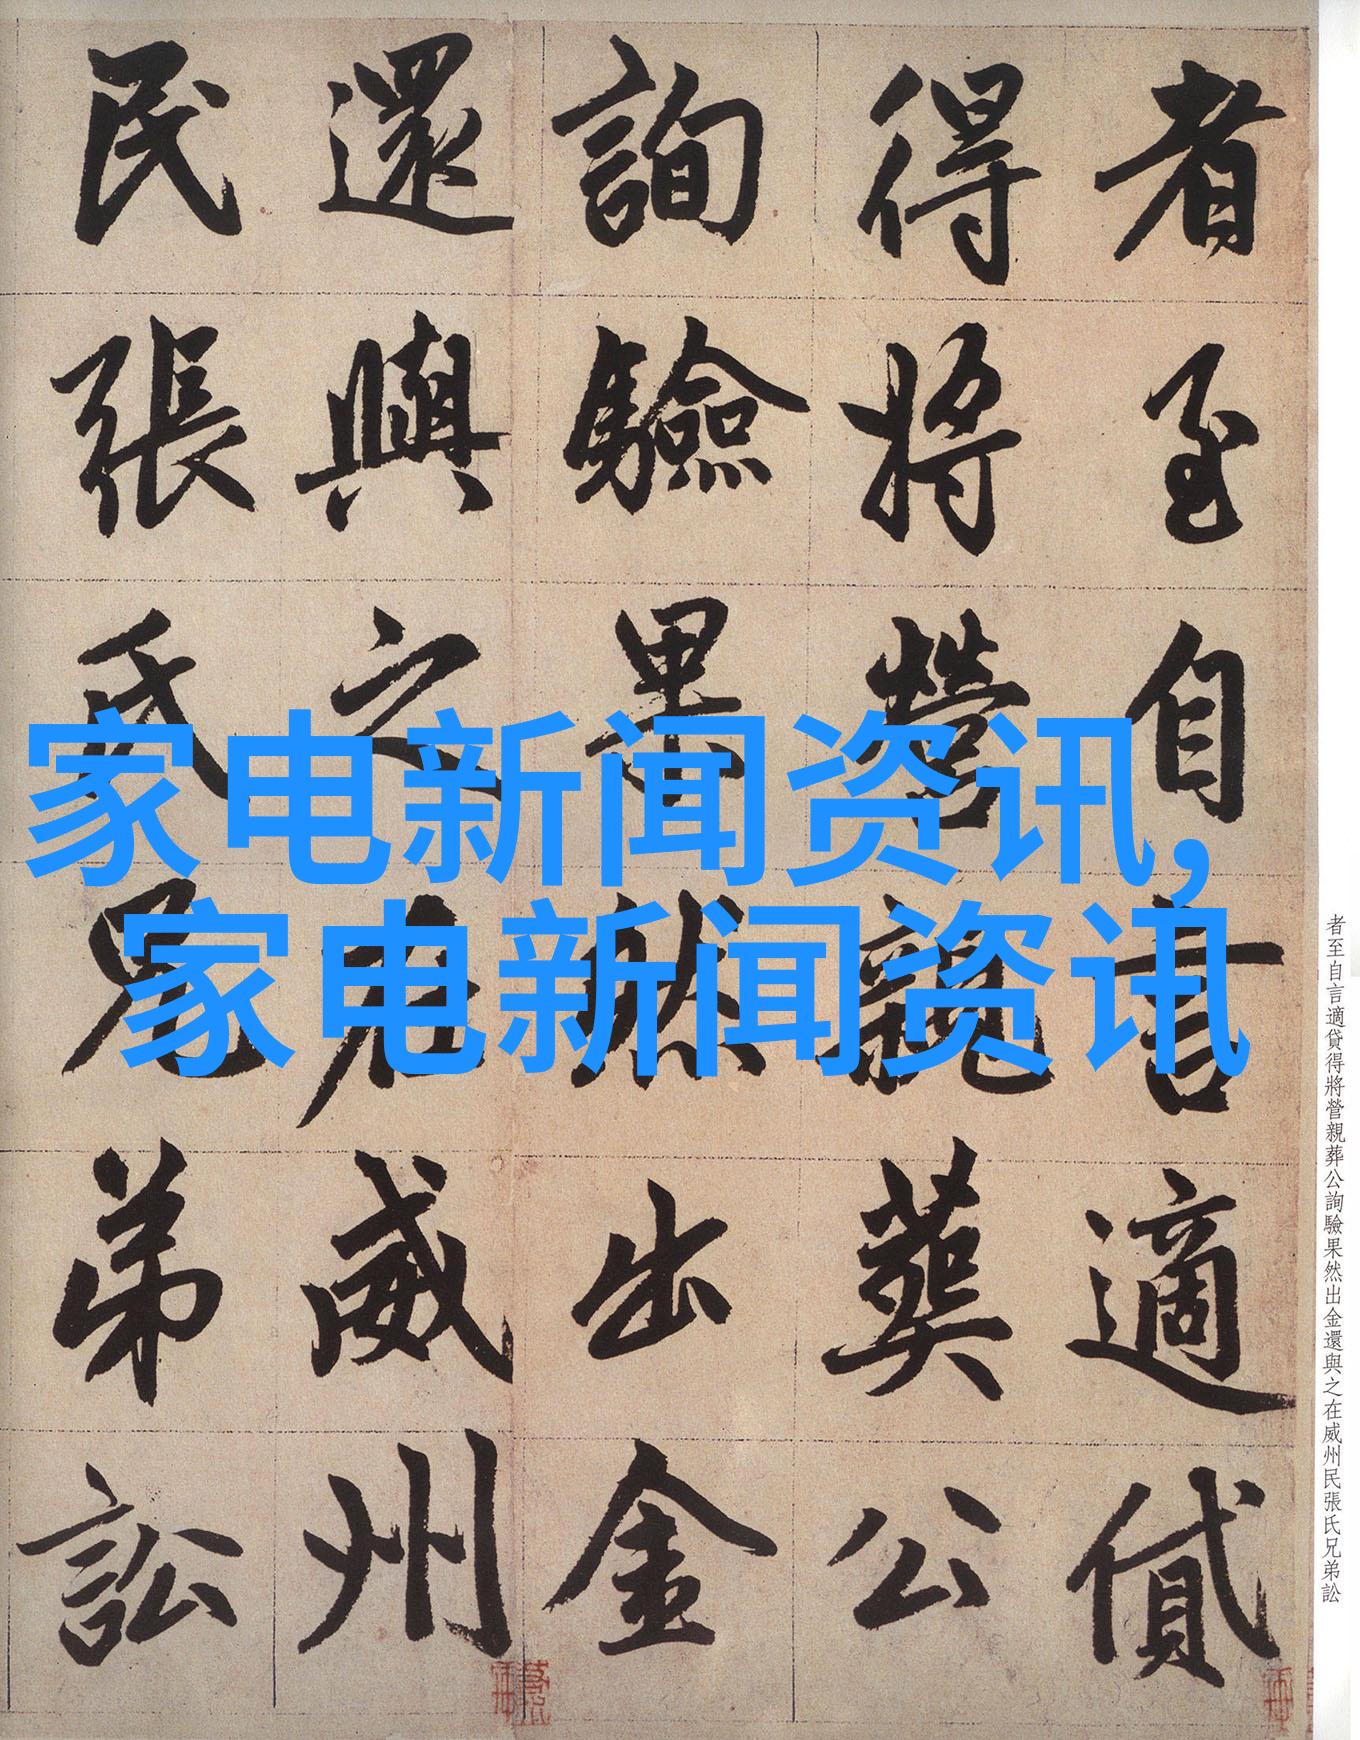 者至自言適貸
得將營親葬公
詢驗果然出金
還與之在威州
民張氏兄弟訟
家电新闻资讯,
家电新闻资讯
者至自言適貸得將營親葬公詢驗果然出金還與之在威州民張氏兄弟訟